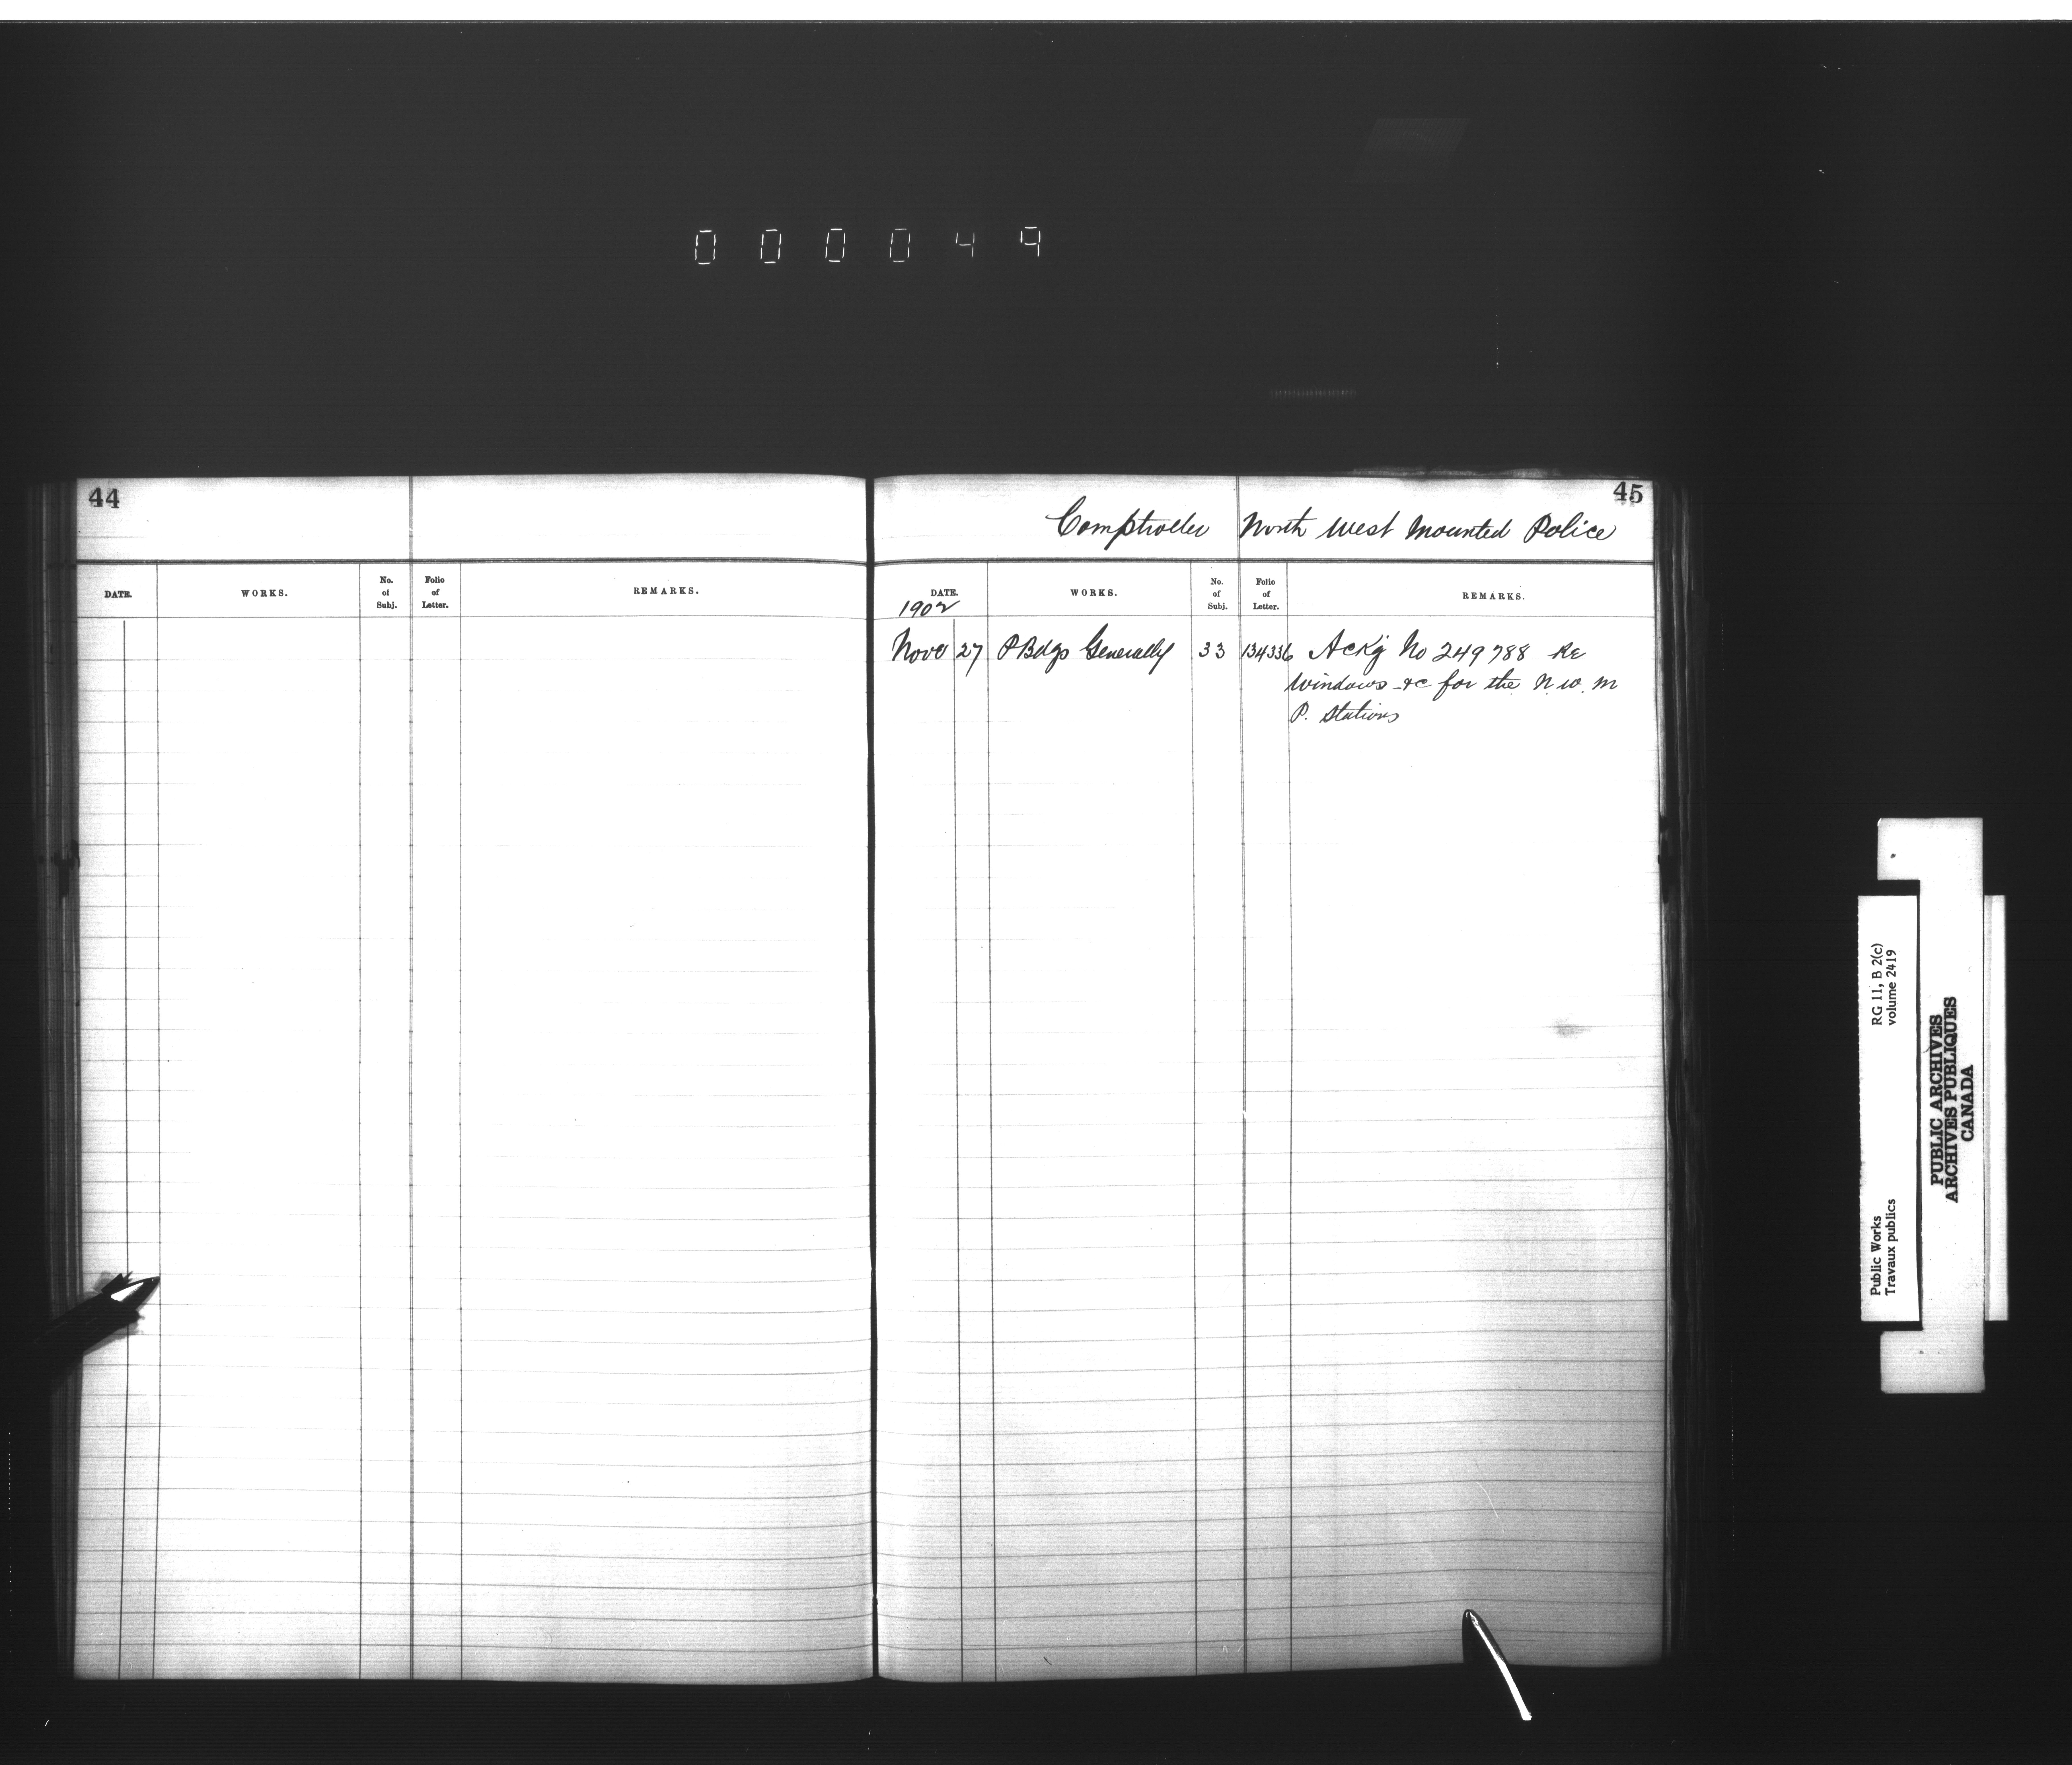 000049
44
45
Comptroller North West Mounted Police
DATE. WORKS. No. of Subj. Folio of Letter. REMARKS.
DATE. WORKS. No. of Subj. Folio of Letter. REMARKS.
1902
Novr 27 P Bdgs Generally 33 134336 Ackg No 249788 Re
windows &c for the N. W. M
P. Stations
RG 11, B 2(c)
volume 2419
Public Works
Travaux publics
PUBLIC ARCHIVES
ARCHIVES PUBLIQUES
CANADA